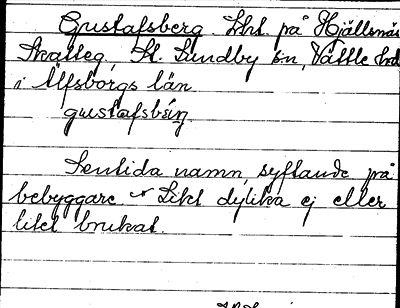 Gustafsberg. Lht. på Hjällsnäs
Skatteg, St. Lundby sn, Vättle hd
i Älfsborgs län.
gustafsbærj
Sentida namn, syftande på
bebyggare. Likt dylika ej eller
litet brukat.